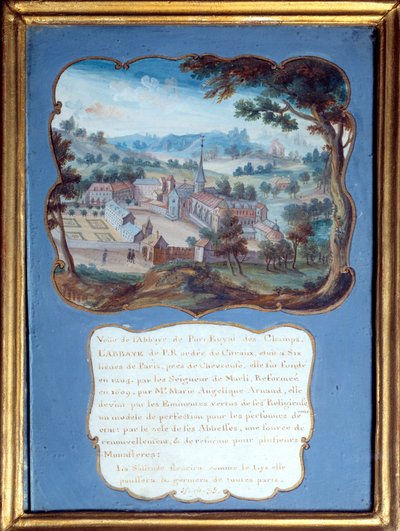 Veüe de l'Abbaye de Port Royal des Champs.
L'ABBAYE de P.R ordre de Citeaux, etoit a Six
lieües de Paris, pres de Chevreuse, elle fut Fondé
en 1204. par les Seigneur de Marli, Reformeé
en 1609. par Me. Marie Angelique Arnaud, elle
devint par les Eminentes vertus de ses Religieuses
un modele de perfection pour les personnes de
etat: par le zele de ses Abbesses, une source de
renouvellement, & de reforme pour plusieurs
Monasteres:
La Solitude fleurira comme le Lys, elle
poussera & germera de toutes parts.